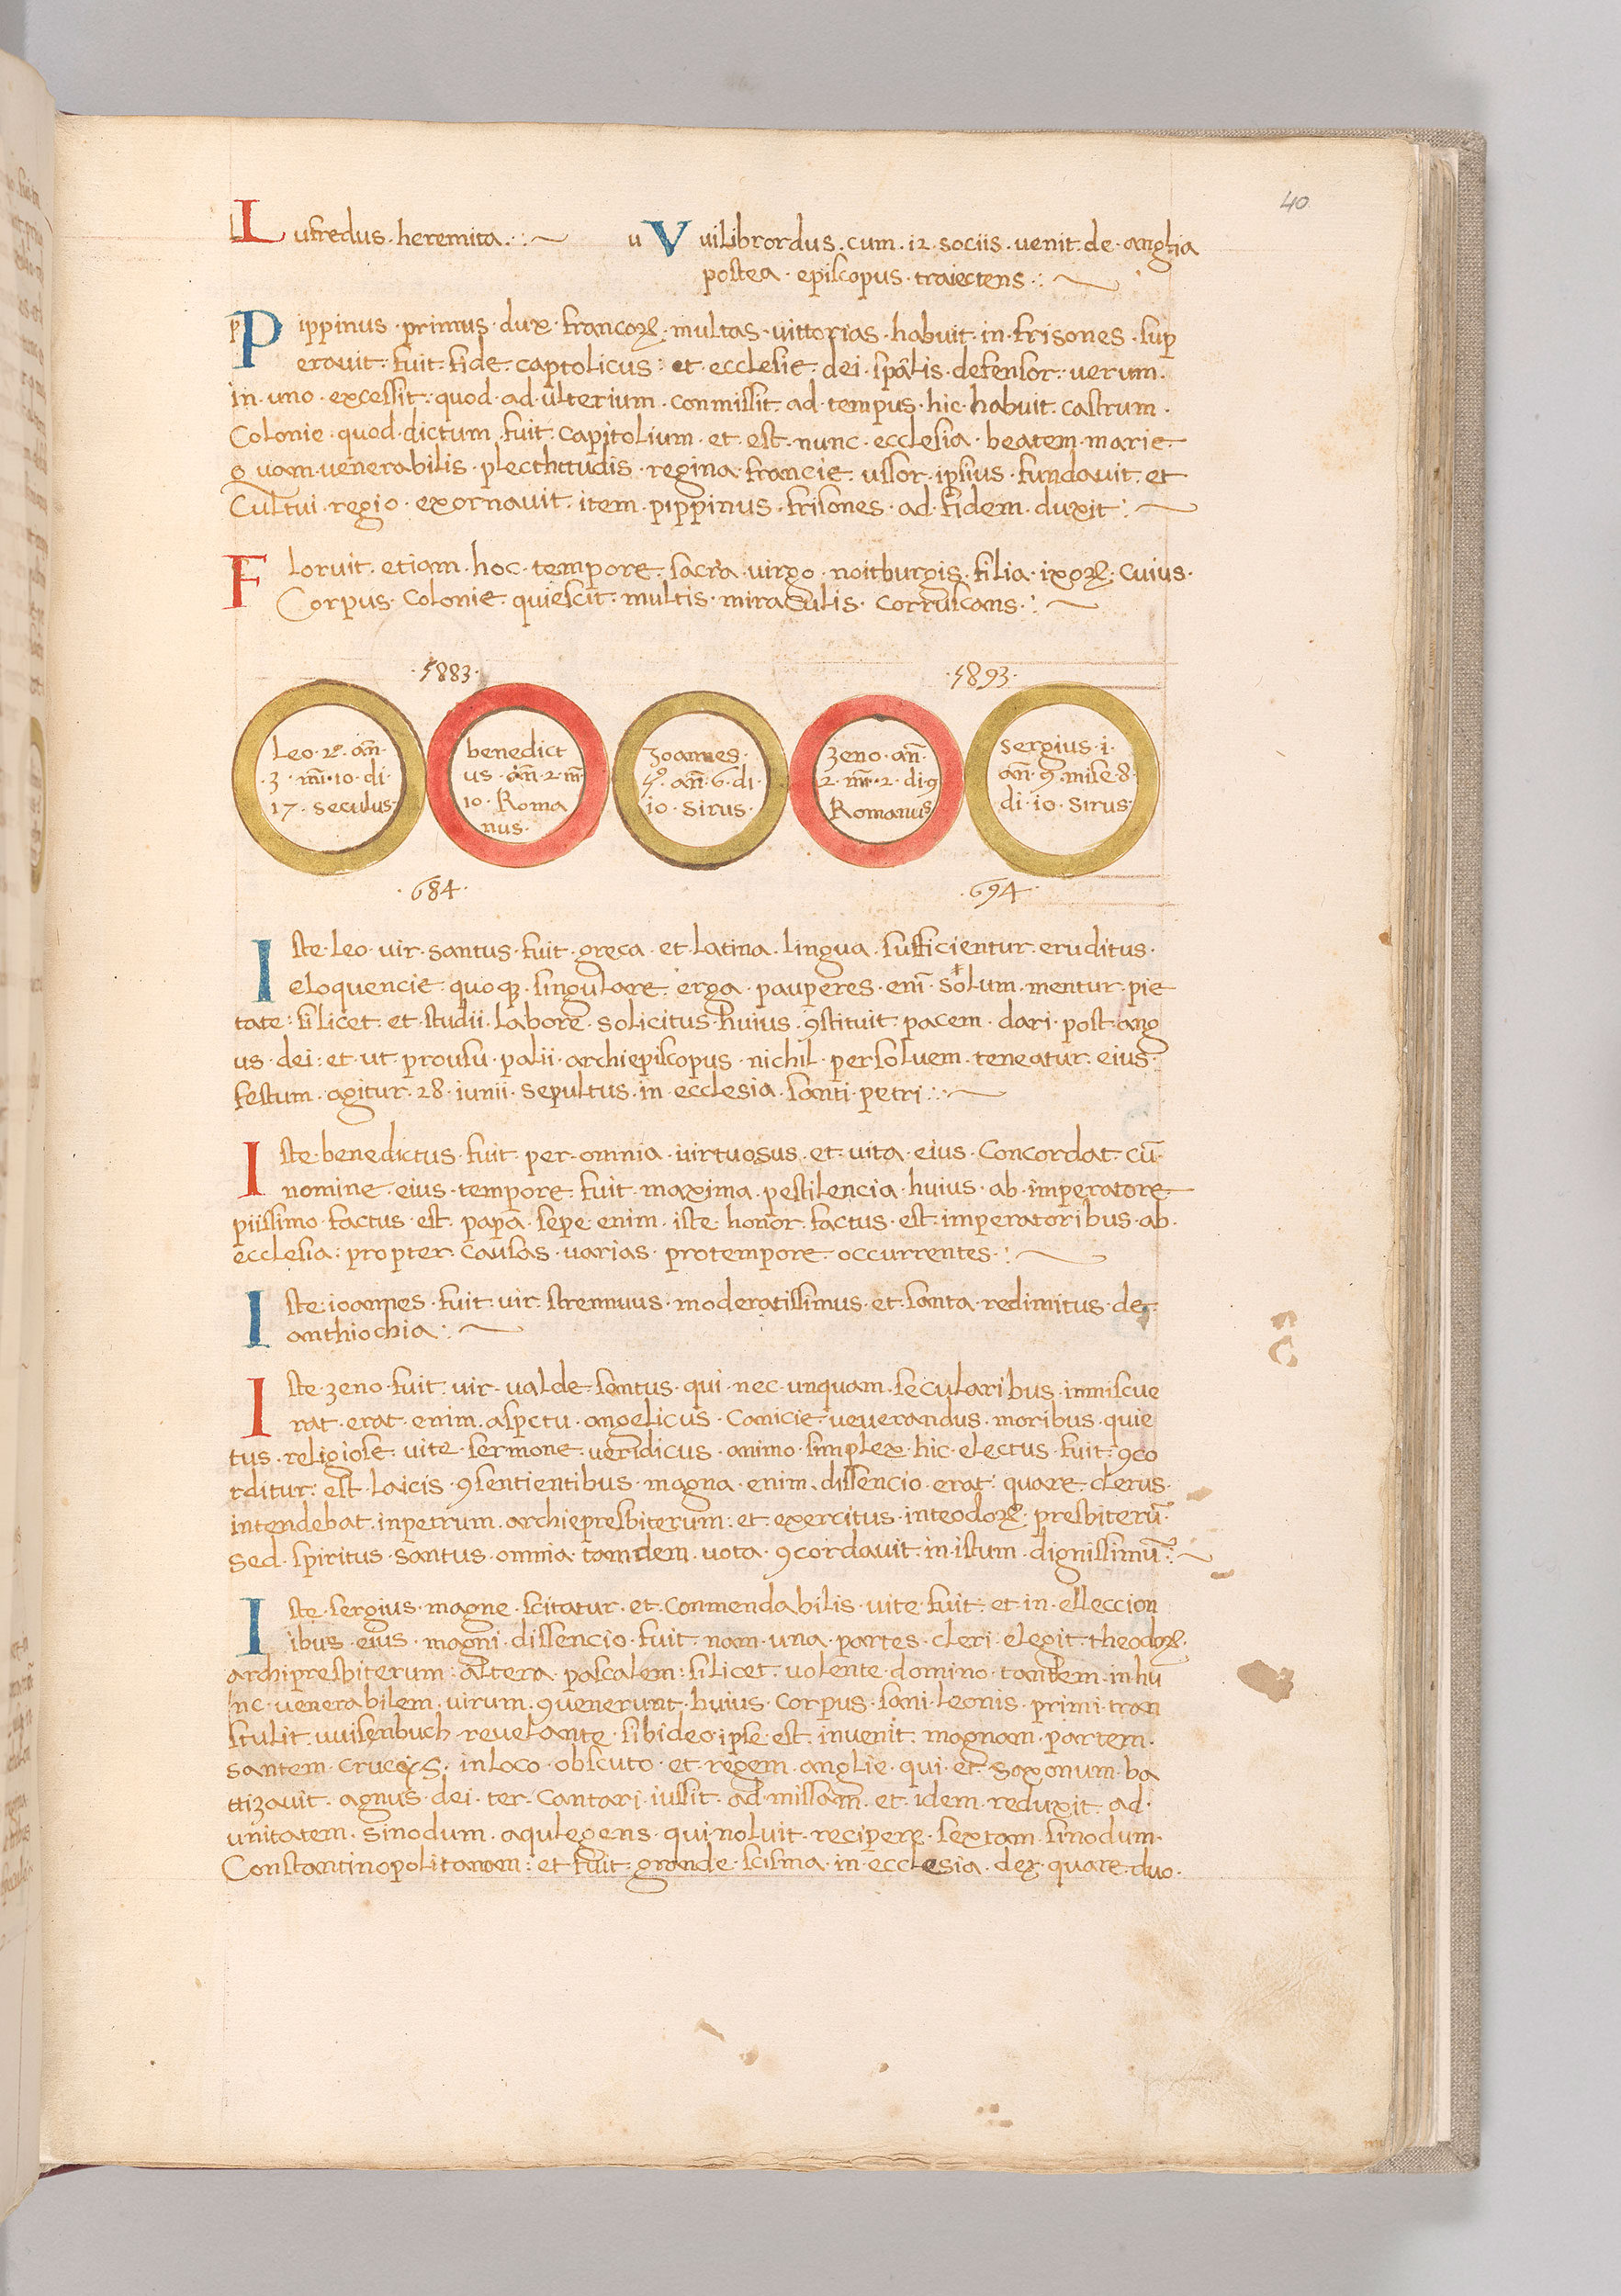 40
Lufredus · heremita
u Vuilibrordus · cum · 12 · sociis · uenit · de · anglia
postea · episcopus · traiectens
p Pippinus · primus · dux · francoꝝ · multas · uittorias · habuit · in · frisones · sup
erauit · fuit · fide · captolicus : et · ecclesie · dei · spâlis · defensor · uerum ·
in · uno · excessit · quod · ad · ulterium · conmissit · ad · tempus · hic · habuit · castrum ·
Colonie · quod · dictum · fuit · capitolium · et · est · nunc · ecclesia · beatem · marie
quam · uenerabilis · plecthrudis · regina · francie · ussor · ipsius · fundauit · et
Cultui · regio · exornauit · item · pippinus · frisones · ad · fidem · duxit
Floruit · etiam · hoc · tempore · sacra · uirgo · noitburgis · filia · ixoꝝ · cuius ·
Corpus · Colonie · quiescit · multis · miraculis · corruscans
· 5883 ·
· 5893 ·
Leo · 2º · an̄ ·
· 3 · m̄ · 10 · di ·
17 · seculus ·
benedict
us · an̄ · 2 · m̄ ·
10 · Roma
nus ·
Joannes ·
5º · an̄ · 6 · di ·
10 · Sirus ·
Zeno · an̄ ·
2 · m̄ · 2 · di 9
Romanus
Sergius · i ·
an̄ · 9 · mise · 8 ·
di · 10 · Sirus ·
· 684 ·
· 694 ·
Iste · leo · uir · santus · fuit · greca · et · latina · lingua · sufficientur · eruditus ·
eloquencie · quoqꝫ · singulare · erga · pauperes · eni̅ · solum · mentur · pie
tate : silicet · et · studii · labore · solicitus · huius · ꝯstituit · pacem · dari · post · ang
us · dei : et · ut · prousu · palii · archiepiscopus · nichil · persoluem · teneatur · eius ·
festum · agitur · 28 · iunii · sepultus · in · ecclesia · santi · petri
Iste · benedictus · fuit · per · omnia · uirtuosus · et · uita · eius · Concordat · cu̅ ·
nomine · eius · tempore · fuit · maxima · pestilencia · huius · ab · imperatore
piissimo · factus · est · papa · sepe · enim · iste · honor · factus · est · imperatoribus · ab ·
ecclesia : propter · causas · uarias · protempore · occurrentes
Iste · ioannes · fuit · uir · strennuus · moderatissimus · et · santa · redimitus · de ·
anthiochia
Iste · zeno · fuit · uir · ualde · santus · qui · nec · unquam · secularibus · inmiscue
rat · erat · enim · aspectu · angelicus · Canicie ·ueuerandus · moribus · quie
tus · religiose · uite · sermone · ueridicus · animo · simplex · hic · electus · fuit · ꝯco
rditur · est · laicis · ꝯsentientibus · magna · enim · dissencio · erat · quare · clerus ·
intendebat · inpetrum · archiepresbiterum : et · exercitus · inteodoꝝ · presbiteru̅ ·
Sed · spiritus · santus · omnia · tamdem · uota · ꝯcordauit · in · istum · dignissimu̅
Iste · sergius · magne · scitatur · et · conmendabilis · uite · fuit · et · in · elleccion
ibus · eius · magni · dissencio · fuit · nam · una · partes · cleri · elegit · theodoꝝ ·
archipresbiterum : altera · pascalem : silicet · uolente · domino · tandem · in hu
nc · uenerabilem · uirum · ꝯuenerunt · huius · corpus · sani · leonis · primi · tran
stulit · uuisenbuch · reuelante · sibideo ipse · est · inuenit · magnam · partem ·
santem · crucis · inloco · obscuto · et · regem · anglie · qui · et · saxonum · ba
ttizauit · agnus · dei · ter · Cantari · iussit · ad · missam · et · idem · reduxit · ad ·
unitatem · sinodum · aqulegens · qui · noluit · recipere · sextam · sinodum ·
Constantinopolitanam : et · fuit · grande · scisma · in · ecclesia · dei · quare · duo ·